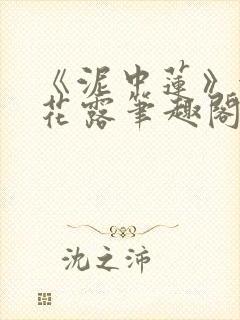 《泥中莲》
花露笔趣阁
沈之沛